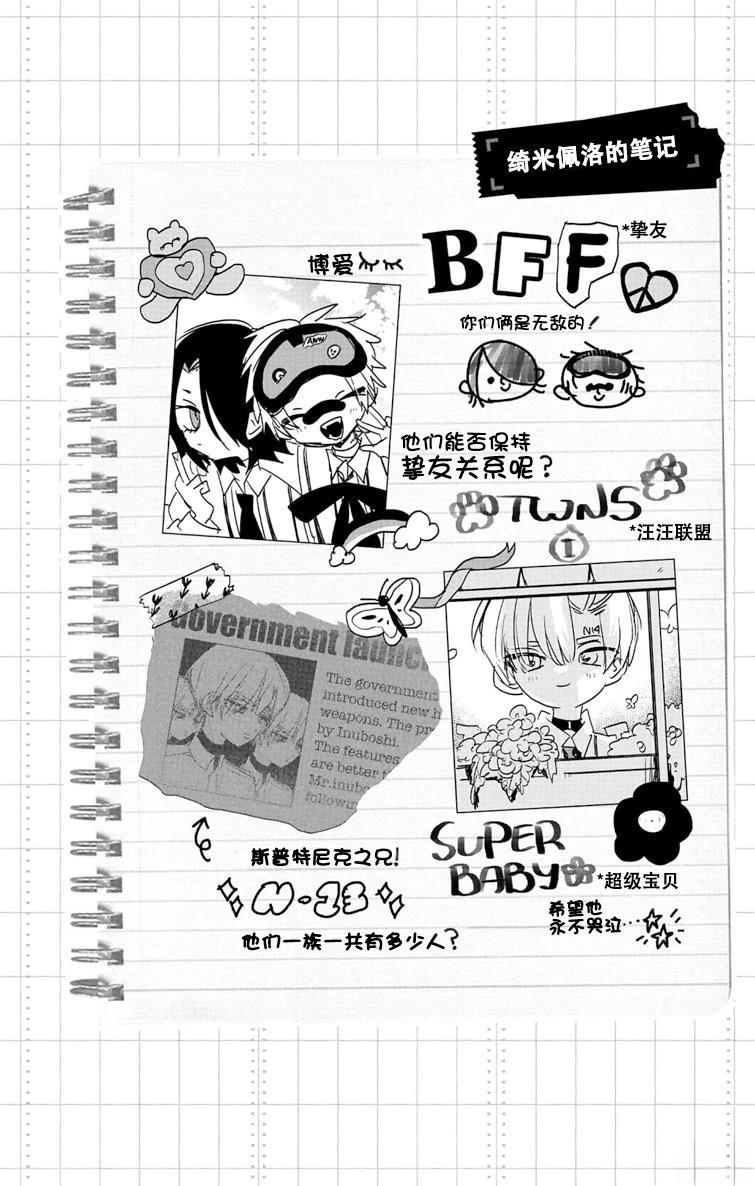 绮米佩洛的笔记
博爱
BFF
*挚友
你们俩是无敌的！
Amy
他们能否保持
挚友关系呢？
TWNS
*汪汪联盟
I
N14
Government launc
The government
introduced new h
weapons. The pr
by Inuboshi.
The features
are better t
Mr.inubo
following
斯普特尼克之兄!
他们一族一共有多少人?
SUPER
BABY
*超级宝贝
希望他
永不哭泣…